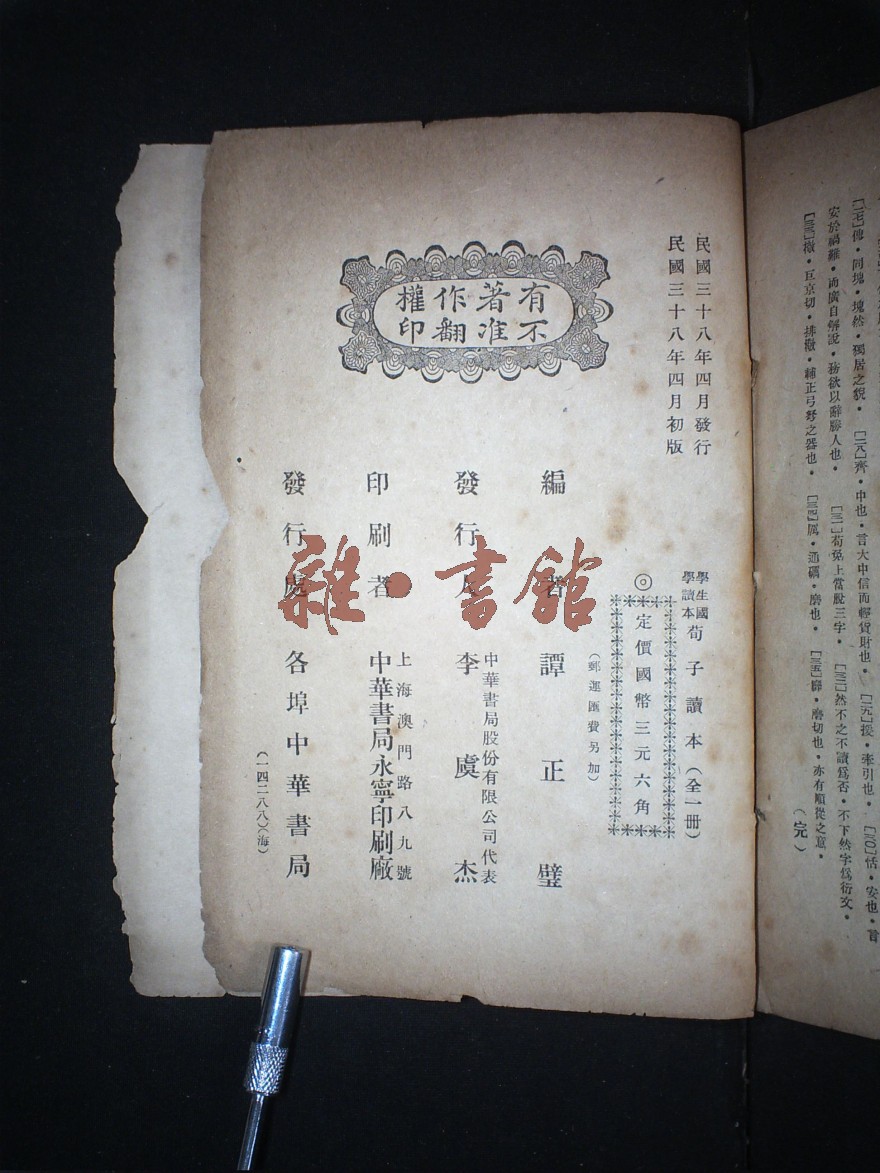 [二七]傀・同塊・塊然・獨居之貌・ [二八]齊・中也・言大中信而輕貨財也・ [二九]援・牽引也・ [三〇]恬・安也・言
安於禍難・而廣自解說・務欲以辭勝人也・ [三一]苟免上當脫三字・ [三二]然不之不讀爲否・不下然字爲衍文・
[三三]檄・巨京切・排檄・輔正弓弩之器也・ [三四]厲・通礪・磨也・ [三五]靡・磨切也・亦有順從之意・
(完)
民國三十八年四月發行
民國三十八年四月初版
有著作權
不准翻印
學生國
學讀本 荀子讀本(全一冊)
◎定價國幣三元六角
(郵運匯費另加)
編著者 譚正璧
中華書局股份有限公司代表
發行人 李虞杰
上海澳門路八九號
印刷者 中華書局永寧印刷廠
發行處 各埠中華書局
(一四二八八)(海)
雜・書館